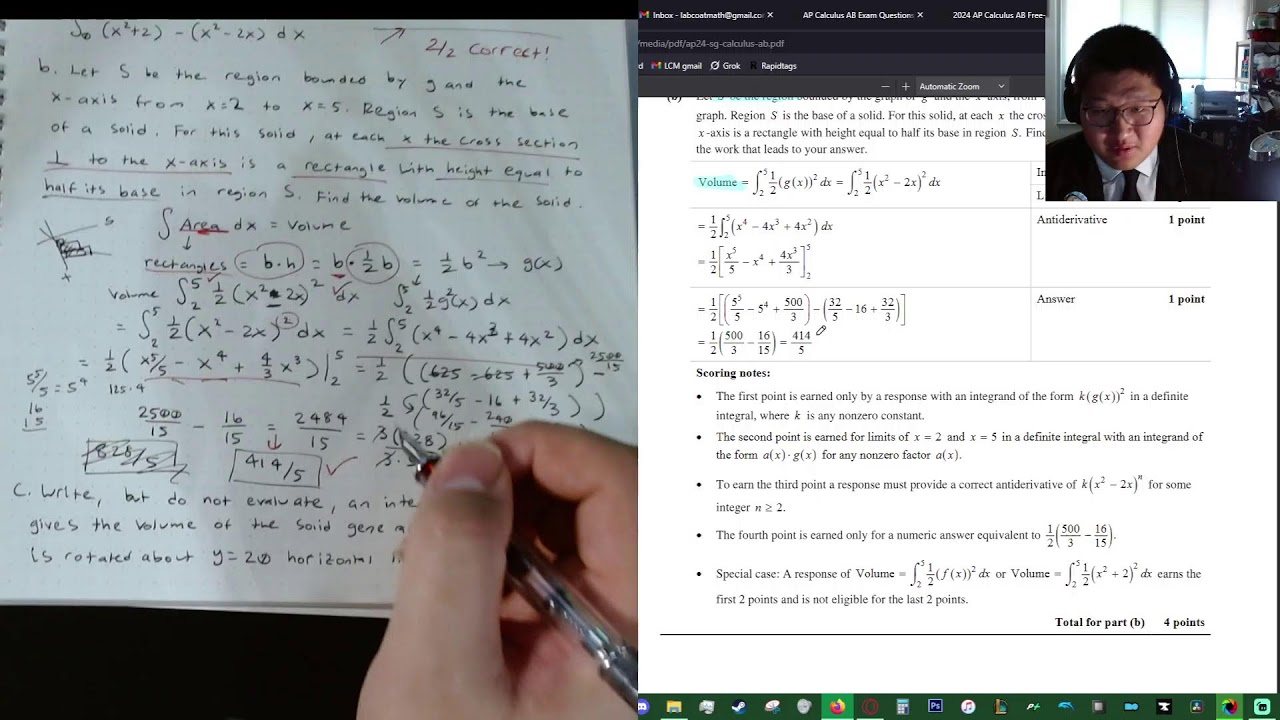 ∫₀ (x²+2) - (x²-2x) dx
2/2 Correct!
b. Let S be the region bounded by g and the
x-axis from x=2 to x=5. Region S is the base
of a solid. For this solid, at each x the cross section
⊥ to the x-axis is a rectangle with height equal to
half its base in region S. Find the volume of the solid.
∫ Area dx = Volume
rectangles = b·h = b·½b = ½b² → g(x)
Volume ∫₂⁵ ½(x²-2x)² dx ∫₂⁵ ½g²(x) dx
= ∫₂⁵ ½(x²-2x)² dx = ½∫₂⁵ (x⁴ - 4x³ + 4x²) dx
= ½(x⁵/5 - x⁴ + 4/3 x³)|₂⁵ = ½((625 - 625 + 500/3) - 2500/15
5⁵/5 = 5⁴ 125·4
½ (32/5 - 16 + 32/3))
(96/15 - 240
16
15
2500/15 - 16/15 = 2484/15 = 3(828)
828/5
414/5 ✓
C. Write, but do not evaluate, an inte
gives the volume of the solid gene
is rotated about y=20 horizontal
Inbox - labcoatmath@gmail.co
AP Calculus AB Exam Question
2024 AP Calculus AB Free-
/media/pdf/ap24-sg-calculus-ab.pdf
LCM gmail Grok Rapidtags
Automatic Zoom
graph. Region S is the base of a solid. For this solid, at each x the cros
x-axis is a rectangle with height equal to half its base in region S. Find
the work that leads to your answer.
Volume = ∫₂⁵ ½(g(x))² dx = ∫₂⁵ ½(x² - 2x)² dx
In
L
= ½∫₂⁵ (x⁴ - 4x³ + 4x²) dx
Antiderivative 1 point
= ½[x⁵/5 - x⁴ + 4x³/3]₂⁵
= ½[(5⁵/5 - 5⁴ + 500/3) - (32/5 - 16 + 32/3)]
Answer 1 point
= ½(500/3 - 16/15) = 414/5
Scoring notes:
• The first point is earned only by a response with an integrand of the form k(g(x))² in a definite
integral, where k is any nonzero constant.
• The second point is earned for limits of x = 2 and x = 5 in a definite integral with an integrand of
the form a(x)·g(x) for any nonzero factor a(x).
• To earn the third point a response must provide a correct antiderivative of k(x² - 2x)ⁿ for some
integer n ≥ 2.
• The fourth point is earned only for a numeric answer equivalent to ½(500/3 - 16/15).
• Special case: A response of Volume = ∫₂⁵ ½(f(x))² dx or Volume = ∫₂⁵ ½(x² + 2)² dx earns the
first 2 points and is not eligible for the last 2 points.
Total for part (b) 4 points